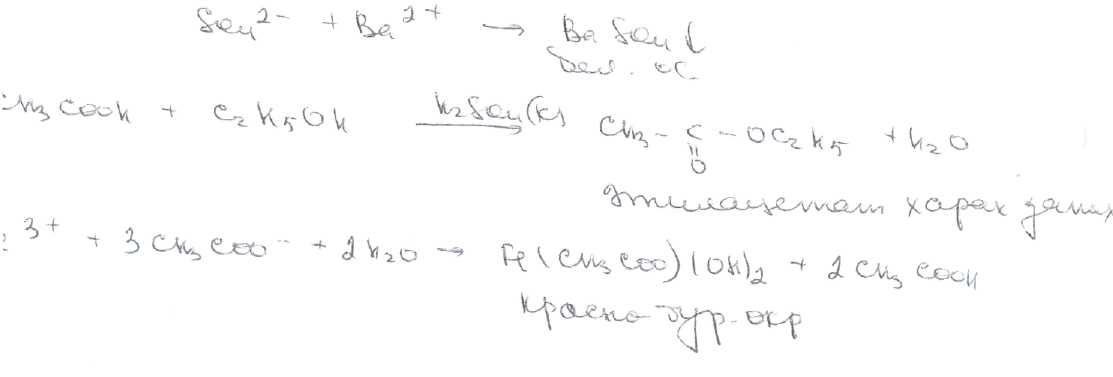 SO₄²⁻ + Ba²⁺ → BaSO₄↓
бел. ос
CH₃COOH + C₂H₅OH H₂SO₄(к) → CH₃ – C – OC₂H₅ + H₂O
O
этилацетат харак запах
3+ + 3CH₃COO⁻ + 2H₂O → Fe(CH₃COO)(OH)₂ + 2CH₃COOH
красно-бур. окр